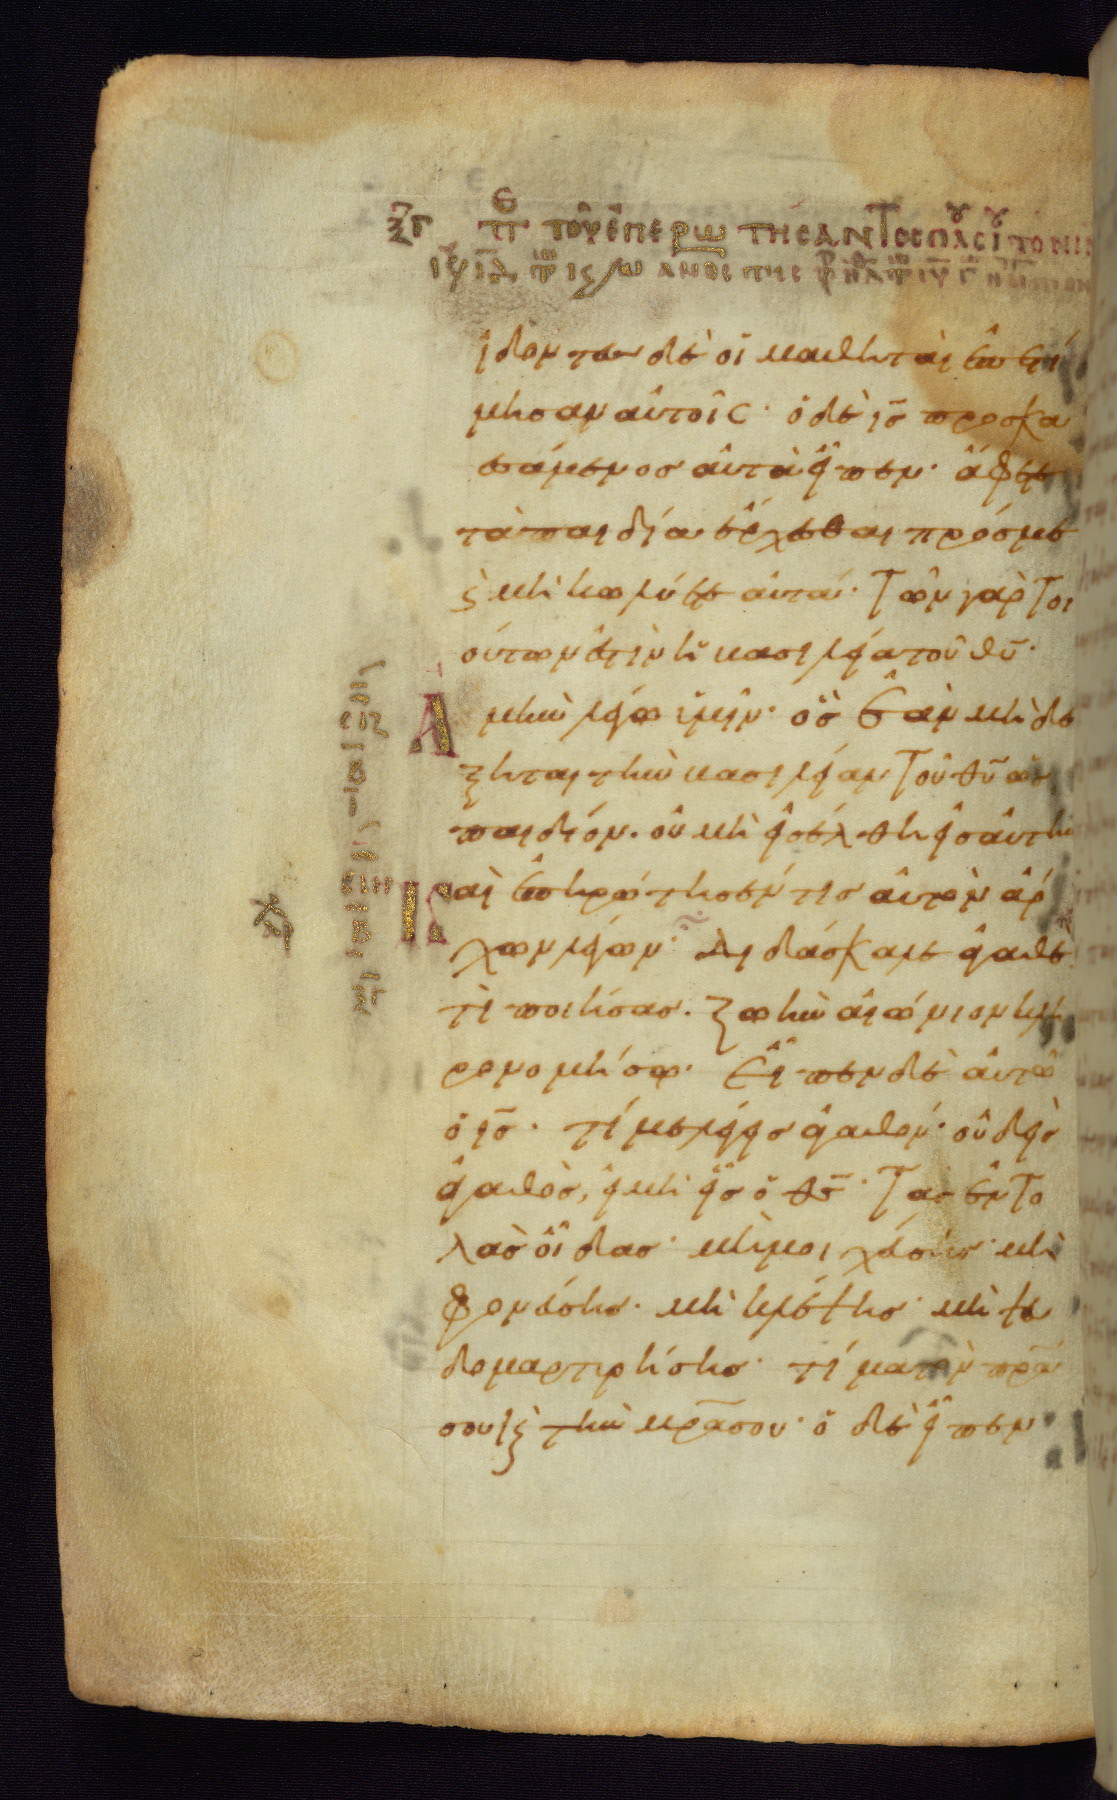 ξγ πε τοῦ ἐπερωτησαντος πλουσίου τὸν ιν
ἰδόντες δὲ οἱ μαθηταὶ ἐπετί
μησαν αὐτοῖς· ὁ δὲ ις̅ προσκα
λεσάμενος αὐτὰ εἶπεν· ἄφετε
τὰ παιδία ἔρχεσθαι πρός με
καὶ μὴ κωλύετε αὐτά· τῶν γὰρ τοι
ούτων ἐστὶν ἡ βασιλεία τοῦ θυ̅·
Ἀμὴν λέγω ὑμῖν· ὃς ἐὰν μὴ δέ
ξηται τὴν βασιλείαν τοῦ θυ̅ ὡς
παιδίον· οὐ μὴ εἰσέλθη εἰς αὐτήν
Καὶ ἐπηρώτησέν τις αὐτὸν ἄρ
χων λέγων· Διδάσκαλε ἀγαθὲ
τί ποιήσας· ζωὴν αἰώνιον κλη
ρονομήσω· Εἶπεν δὲ αὐτῶ
ὁ ις̅· τί με λέγεις ἀγαθόν· οὐδεὶς
ἀγαθὸς, εἰ μὴ εἷς ὁ θς̅· Τὰς ἐντο
λὰς οἶδας· μὴ μοιχεύσης· μὴ
φονεύσης· μὴ κλέψης· μὴ ψευ
δομαρτυρήσης· τίμα τὸν πρα̅
σου καὶ τὴν μρα̅ σου· ὁ δὲ εἶπεν·